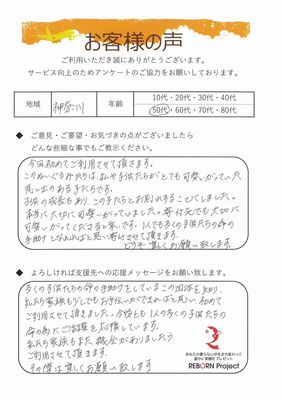 お客様の声
ご利用いただき誠にありがとうございます。
サービス向上のためアンケートのご協力をお願いしております。
地域 神奈川 年齢 10代・20代・30代・40代
50代・60代・70代・80代
◆ ご意見・ご要望・お気づきの点がございましたら
どんな些細な事でもご教示ください。
今回初めてご利用させて頂きます。
このぬいぐるみたちは、私や子供たちがとても可愛いがった
思い出のある子たちです。
子供の成長もあり、この子たちとお別れすることにしました。
本当に大切に可愛いがっていました。寄付先でも大切に
可愛いがってくださると幸いです。1人でも多くの子供たちの命の
手助けとなればと思い寄付させて頂きます。
どうぞ宜しくお願い致します。
◆ よろしければ支援先への応援メッセージをお願い致します。
多くの子供たちの命の手助けをしているこの団体を知り、
私たち家族も少しでもお手伝いができればと思い、初めて
ご利用させて頂きました。今後とも1人の多くの子供たちの
命の為にご活躍を応援しています。
私たち家族もまた、機会がありましたら
ご利用させて頂きます。
その際は宜しくお願い致します
あなたの要らないが生まれ変わって
誰かに笑顔をプレゼント
REBORN Project